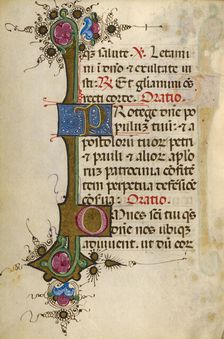 qȝ salute. V. Letami
ni ī dn̄o ⁊ exultate iu
sti. R. Et gl̄iamini oēs
recti corde. Oratio.
Protege dn̄e po
pulum tuū: ⁊ a
postolorū tuor petri
⁊ pauli ⁊ alior ap̄lor
patrocinia cōfitē
tem perpetua defēsiōe
cōserua: Oratio.
Omnes sc̄i tui qs
dn̄e nos ubiqȝ
adiuuent. ut dū eor